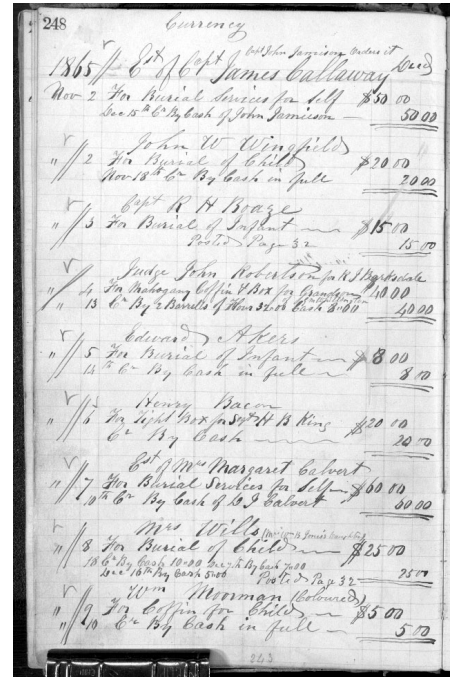 248 Currency
Capt John Jamison Orders it
1865 Est of Capt James Callaway Decd
Nov 2 For Burial Services for Self $50 00
Dec 15th Cr By Cash of John Jamieson — 50 00
John W Wingfield
" 2 For Burial of Child $20 00
Nov 18th Cr By Cash in full 20 00
Capt R H Boaze
" 3 For Burial of Infant — $15 00
Posted Page 32 15 00
Judge John Robertson for K J Barksdale
" 4 For Mahogany Coffin & Box for Grandson $40 00
" 13 Cr By 2 Barrels of Flour 32.00 Cash 8.00 40 00
Edward Akers
" 5 For Burial of Infant — $8 00
14th Cr By Cash in full — 8 00
Henry Bacon
" 6 For Tight Box for Sgt H B King $20 00
Cr By Cash — 20 00
Est of Mrs Margaret Calvert
" 7 For Burial Services for Self — $60 00
10th Cr By Cash of L J Calvert 60 00
Mrs Wills
" 8 For Burial of Child — $25 00
10 Cr By Cash 10.00 By Cash 7.00
Dec 16th By Cash 5.00 Posted Page 32 25 00
Wm Moorman (Coloured)
" 9 For Coffin for Child — $5 00
" 10 Cr By Cash in full — 5 00
343